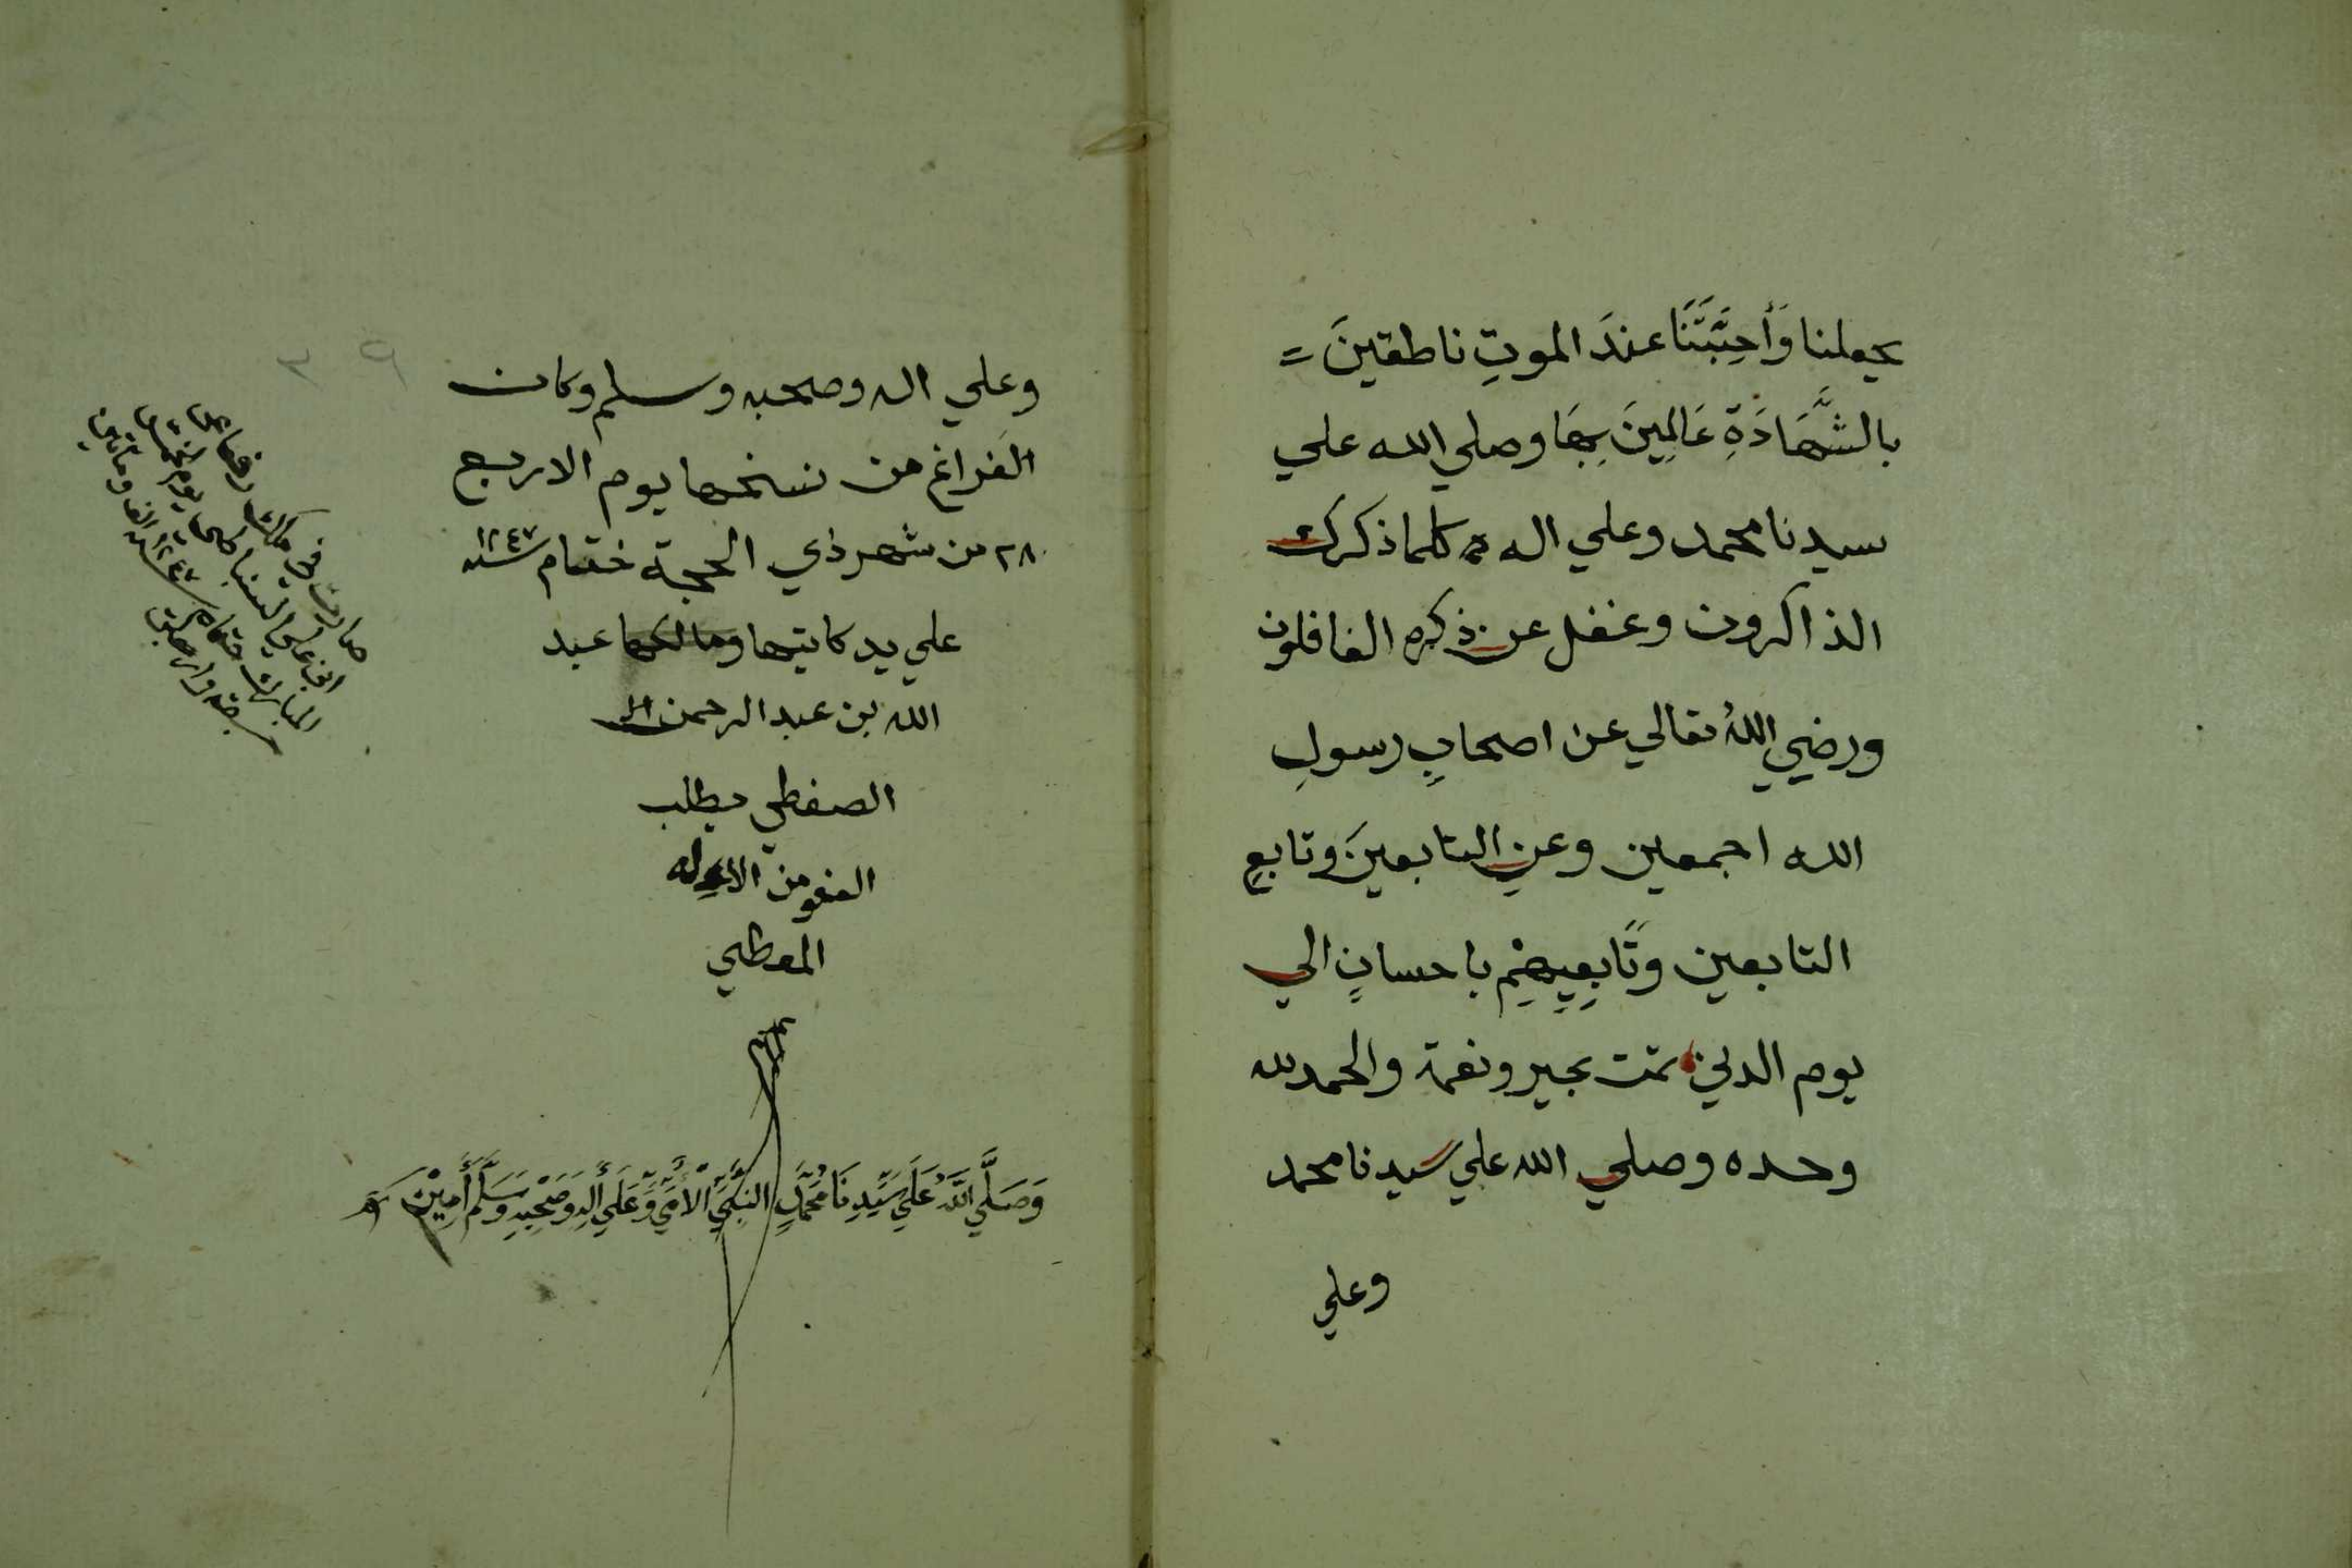 يجعلنا وَأَحِبَّتَنَا عندَ الموتِ ناطقينَ =
بالشَّهَادَةِ عَالِمِينَ بِهَا وصلي الله علي
سيدنا محمد وعلي اله كلما ذكرك
الذاكرون وغفل عن ذكره الغافلون
ورضي اللهُ تعالي عن اصحابِ رسولِ
الله اجمعين وعنِ التابعينَ وتابعِ
التابعين وتَابِعِيهِمْ باحسانٍ الي
يوم الدين تمت بخير ونعمة والحمد لله
وحده وصلي الله علي سيدنا محمد
وعلي
٣٩
وعلي اله وصحبه وسلم وكان
الفراغ من نسخها يوم الاربع
٢٨ من شهر ذي الحجة ختام سنة ١٢٤٧
علي يد كاتبها ومالكها عبد
الله بن عبد الرحمن
الصفطي يطلب
العفو من الاله
المعطي
وَصَلَّي اللَّهُ عَلَي سَيِّدِنَا مُحَمَّدٍ النَّبِيِّ الأُمِّيِّ وَعَلَي أَلِهِ وَصَحْبِهِ وَسَلَّمَ أَمِيْن